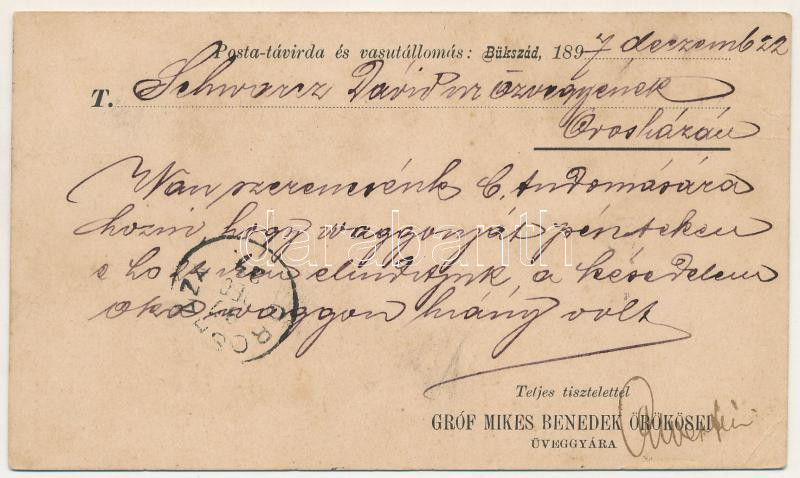 Posta-távirda és vasutállomás: Bükszád, 1897 deczemb 22
T. Schwarcz Dávid úr özvegyének
Orosházán
Van szerencsénk b. tudomására
hozni hogy waggonját pénteken
e hó elinditjuk, a késedelem
oka waggon hiány volt
Teljes tisztelettel
GRÓF MIKES BENEDEK ÖRÖKÖSEI
ÜVEGGYÁRA
OROSHÁZA
darabanth